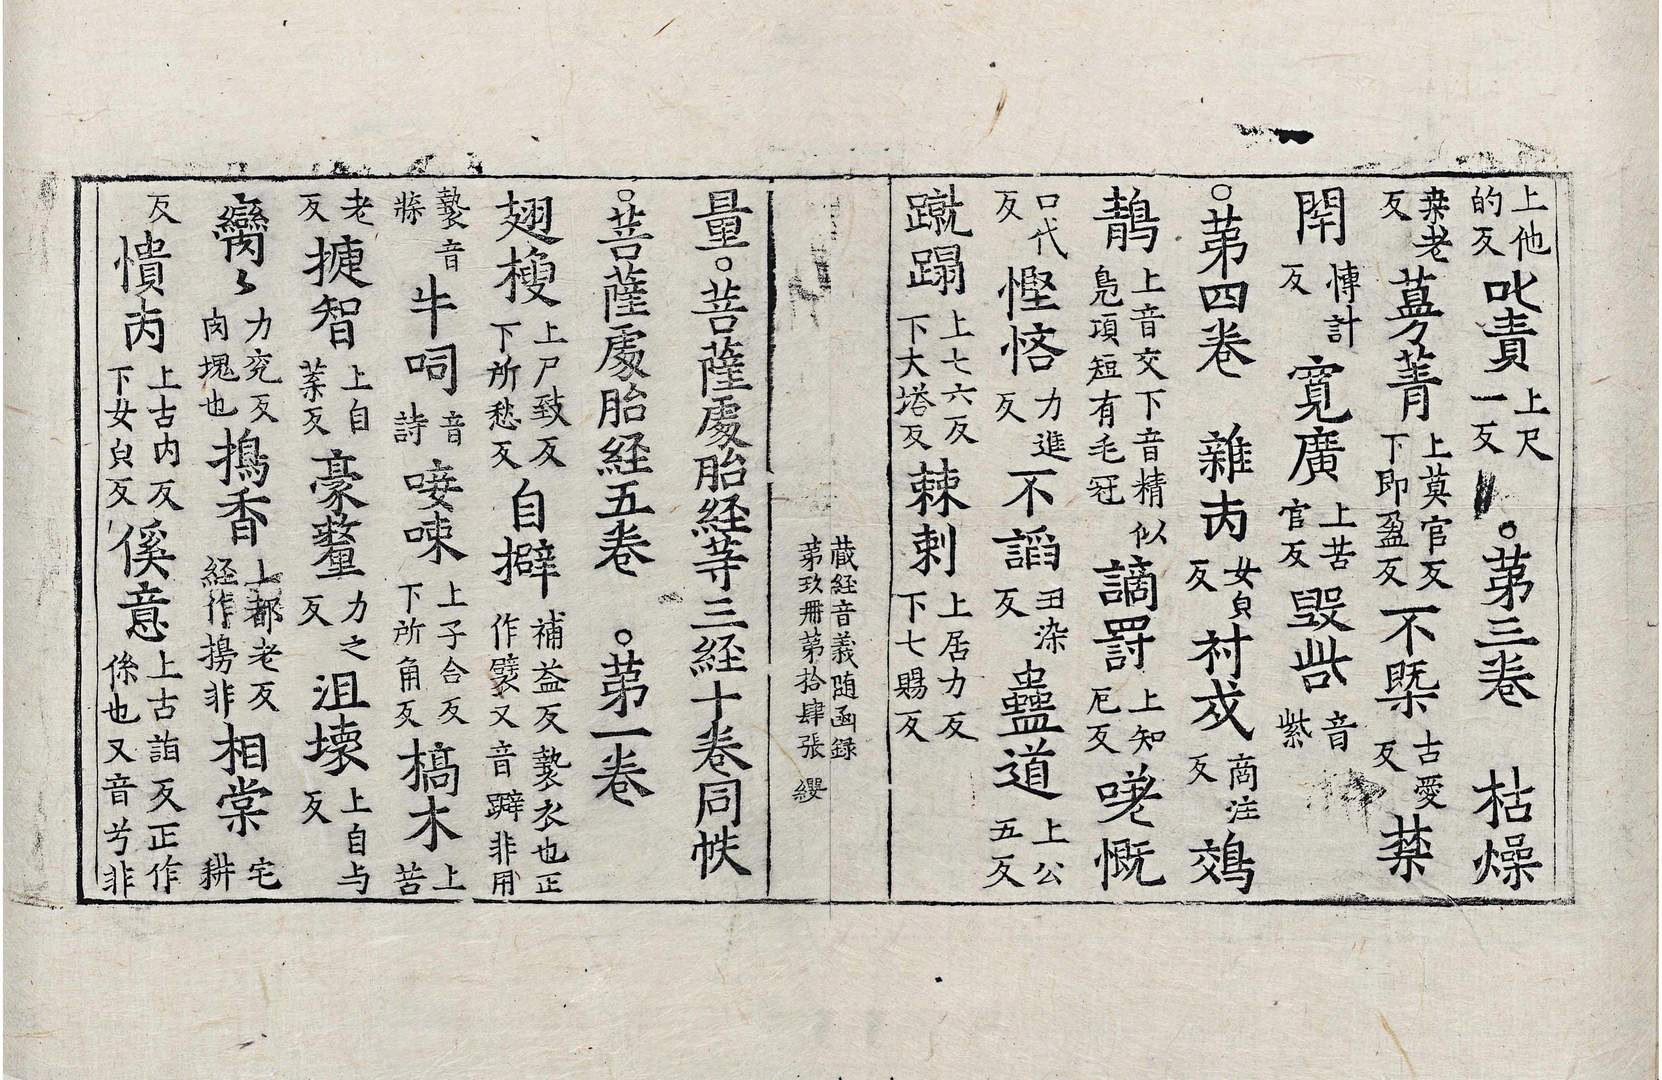 上他的反叱責上尺一反 。苐三卷 枯燥
桒老反蔓菁上莫官反下即盈反不槩古愛反禁
閇博計反寬廣上苦官反毁呰音紫
。苐四卷 雜肉女皃反村戍商注反鵁
鶄上音交下音精似鳧項短有毛冠謫罸上知厄反嘆慨
口代反慳悋力進反不謟丑染反蠱道上公五反
蹴蹋上七六反下大塔反棘刺上居力反下七賜反
藏経音義随函録
苐玖冊苐拾肆張 纓
量。菩薩處胎経等三経十卷同帙
。菩薩處胎経五卷 。苐一卷
翅㮴上尸致反下所愁反自擗補益反褺衣也正作襞又音躃非用
褺音牒牛呞音詩唼㖒上子合反下所角反槁木上苦
老反捷智上自葉反豪氂力之反沮壊上自与反
臠〻力兖反肉塊也擣香上都老反経作㨶非相棠宅耕
反憒丙上古內反下女皃反傒意上古詣反正作係也又音兮非